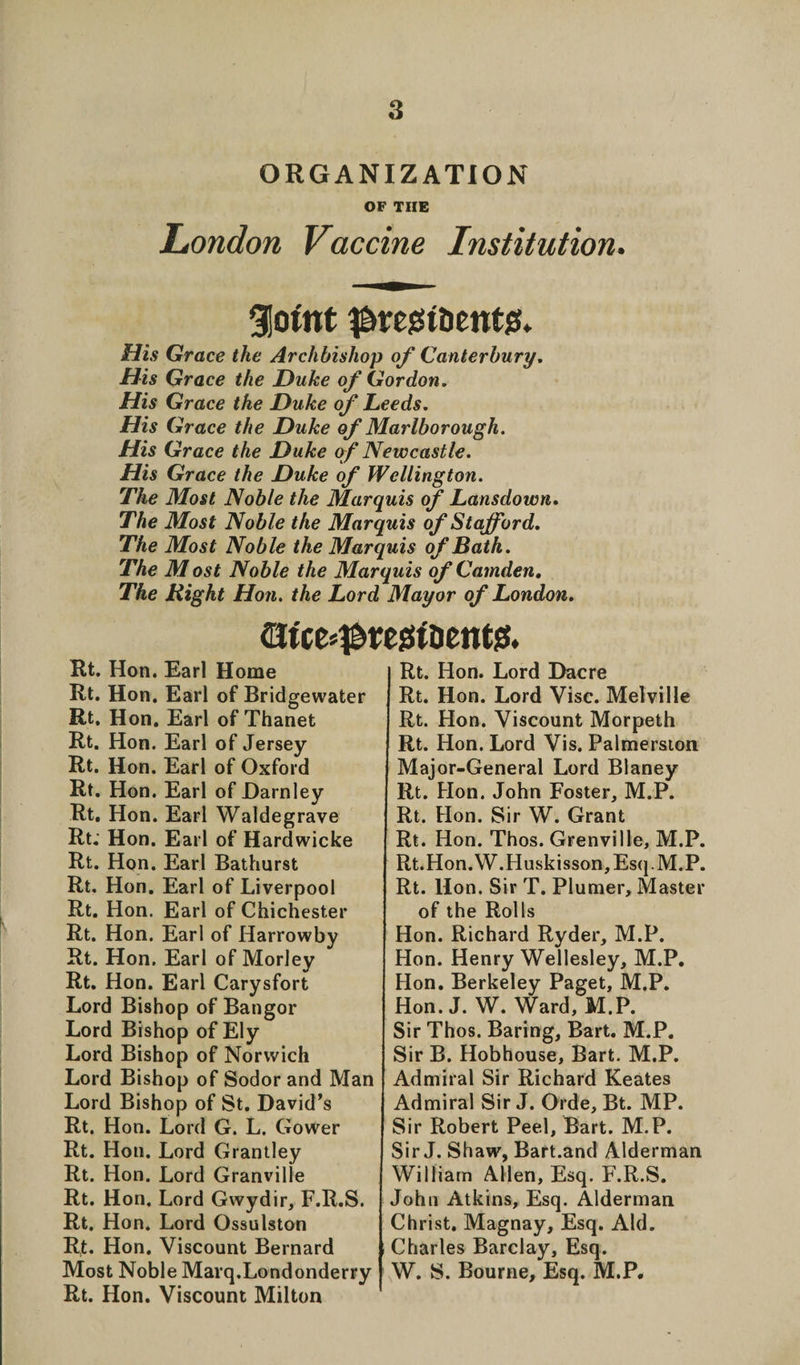 3
ORGANIZATION
OF THE
London Vaccine Institution.
Joint Presidents.
His Grace the Archbishop of Canterbury.
His Grace the Duke of Gordon.
His Grace the Duke of Leeds.
His Grace the Duke of Marlborough.
His Grace the Duke of Newcastle.
His Grace the Duke of Wellington.
The Most Noble the Marquis of Lansdown.
The Most Noble the Marquis of Stafford.
The Most Noble the Marquis of Bath.
The Most Noble the Marquis of Camden.
The Right Hon. the Lord Mayor of London.
Vice-Presidents.
Rt. Hon. Earl Home
Rt. Hon. Earl of Bridgewater
Rt. Hon. Earl of Thanet
Rt. Hon. Earl of Jersey
Rt. Hon. Earl of Oxford
Rt. Hon. Earl of Darnley
Rt. Hon. Earl Waldegrave
Rt. Hon. Earl of Hardwicke
Rt. Hon. Earl Bathurst
Rt. Hon. Earl of Liverpool
Rt. Hon. Earl of Chichester
Rt. Hon. Earl of Harrowby
Rt. Hon. Earl of Morley
Rt. Hon. Earl Carysfort
Lord Bishop of Bangor
Lord Bishop of Ely
Lord Bishop of Norwich
Lord Bishop of Sodor and Man
Lord Bishop of St. David's
Rt. Hon. Lord G. L. Gower
Rt. Hon. Lord Grantley
Rt. Hon. Lord Granville
Rt. Hon. Lord Gwydir, F.R.S.
Rt. Hon. Lord Ossulston
Rt. Hon. Viscount Bernard
Most Noble Marq.Londonderry
Rt. Hon. Viscount Milton
Rt. Hon. Lord Dacre
Rt. Hon. Lord Visc. Melville
Rt. Hon. Viscount Morpeth
Rt. Hon. Lord Vis. Palmerston
Major-General Lord Blaney
Rt. Hon. John Foster, M.P.
Rt. Hon. Sir W. Grant
Rt. Hon. Thos. Grenville, M.P.
Rt.Hon.W.Huskisson,Esq.M.P.
Rt. Hon. Sir T. Plumer, Master
of the Rolls
Hon. Richard Ryder, M.P.
Hon. Henry Wellesley, M.P.
Hon. Berkeley Paget, M.P.
Hon. J. W. Ward, M.P.
Sir Thos. Baring, Bart. M.P.
Sir B. Hobhouse, Bart. M.P.
Admiral Sir Richard Keates
Admiral Sir J. Orde, Bt. MP.
Sir Robert Peel, Bart. M.P.
Sir J. Shaw, Bart.and Alderman
William Allen, Esq. F.R.S.
John Atkins, Esq. Alderman
Christ. Magnay, Esq. Ald.
Charles Barclay, Esq.
W. S. Bourne, Esq. M.P.